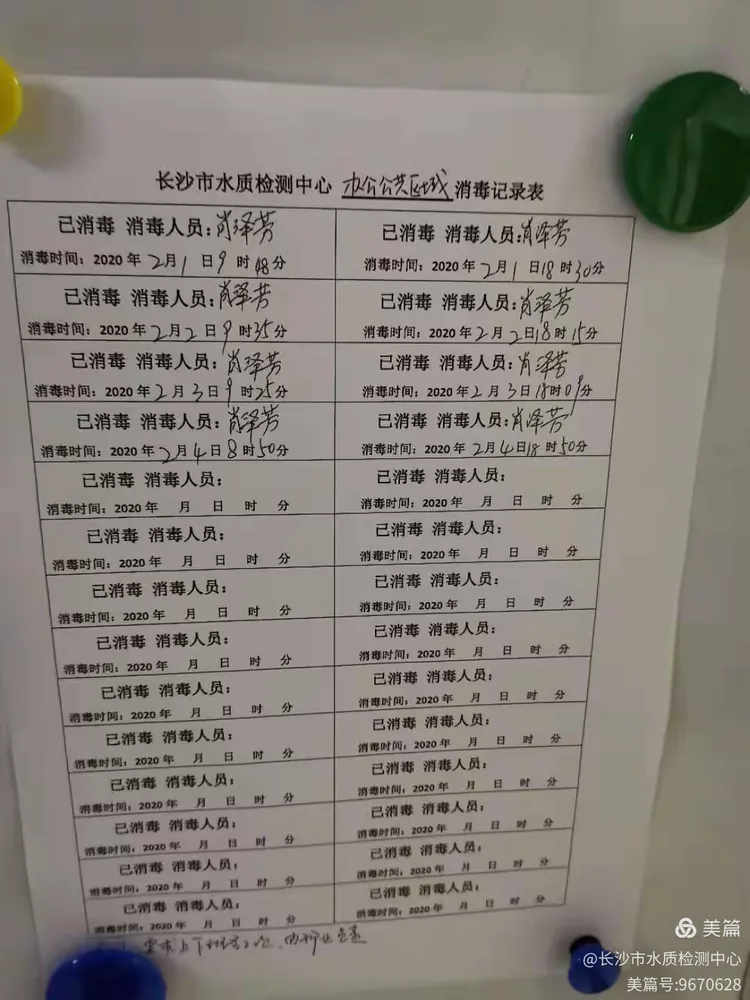 长沙市水质检测中心 办公公共区域 消毒记录表
已消毒 消毒人员:肖泽芳 已消毒 消毒人员:肖泽芳
消毒时间:2020 年 2月1 日9 时48分 消毒时间:2020 年 2月1 日18 时30分
已消毒 消毒人员:肖泽芳 已消毒 消毒人员:肖泽芳
消毒时间:2020 年2月2日9 时35分 消毒时间:2020 年 2月 2日18 时15分
已消毒 消毒人员:肖泽芳 已消毒 消毒人员:肖泽芳
消毒时间:2020 年2 月 3日9 时25分 消毒时间:2020 年2 月 3日18时09分
已消毒 消毒人员:肖泽芳 已消毒 消毒人员:肖泽芳
消毒时间:2020 年2月4日8 时50分 消毒时间:2020 年 2月4日18 时50分
已消毒 消毒人员: 已消毒 消毒人员:
消毒时间:2020 年 月 日 时 分 消毒时间:2020 年 月 日 时 分
已消毒 消毒人员: 已消毒 消毒人员:
消毒时间:2020 年 月 日 时 分 消毒时间:2020 年 月 日 时 分
已消毒 消毒人员: 已消毒 消毒人员:
消毒时间:2020 年 月 日 时 分 消毒时间:2020 年 月 日 时 分
已消毒 消毒人员: 已消毒 消毒人员:
消毒时间:2020 年 月 日 时 分 消毒时间:2020 年 月 日 时 分
已消毒 消毒人员: 已消毒 消毒人员:
消毒时间:2020 年 月 日 时 分 消毒时间:2020 年 月 日 时 分
已消毒 消毒人员: 已消毒 消毒人员:
消毒时间:2020 年 月 日 时 分 消毒时间:2020 年 月 日 时 分
已消毒 消毒人员: 已消毒 消毒人员:
消毒时间:2020 年 月 日 时 分 消毒时间:2020 年 月 日 时 分
已消毒 消毒人员: 已消毒 消毒人员:
消毒时间:2020 年 月 日 时 分 消毒时间:2020 年 月 日 时 分
已消毒 消毒人员: 已消毒 消毒人员:
消毒时间:2020 年 月 日 时 分 消毒时间:2020 年 月 日 时 分
已消毒 消毒人员: 已消毒 消毒人员:
消毒时间:2020 年 月 日 时 分 消毒时间:2020 年 月 日 时 分
美篇
@长沙市水质检测中心
美篇号:9670628